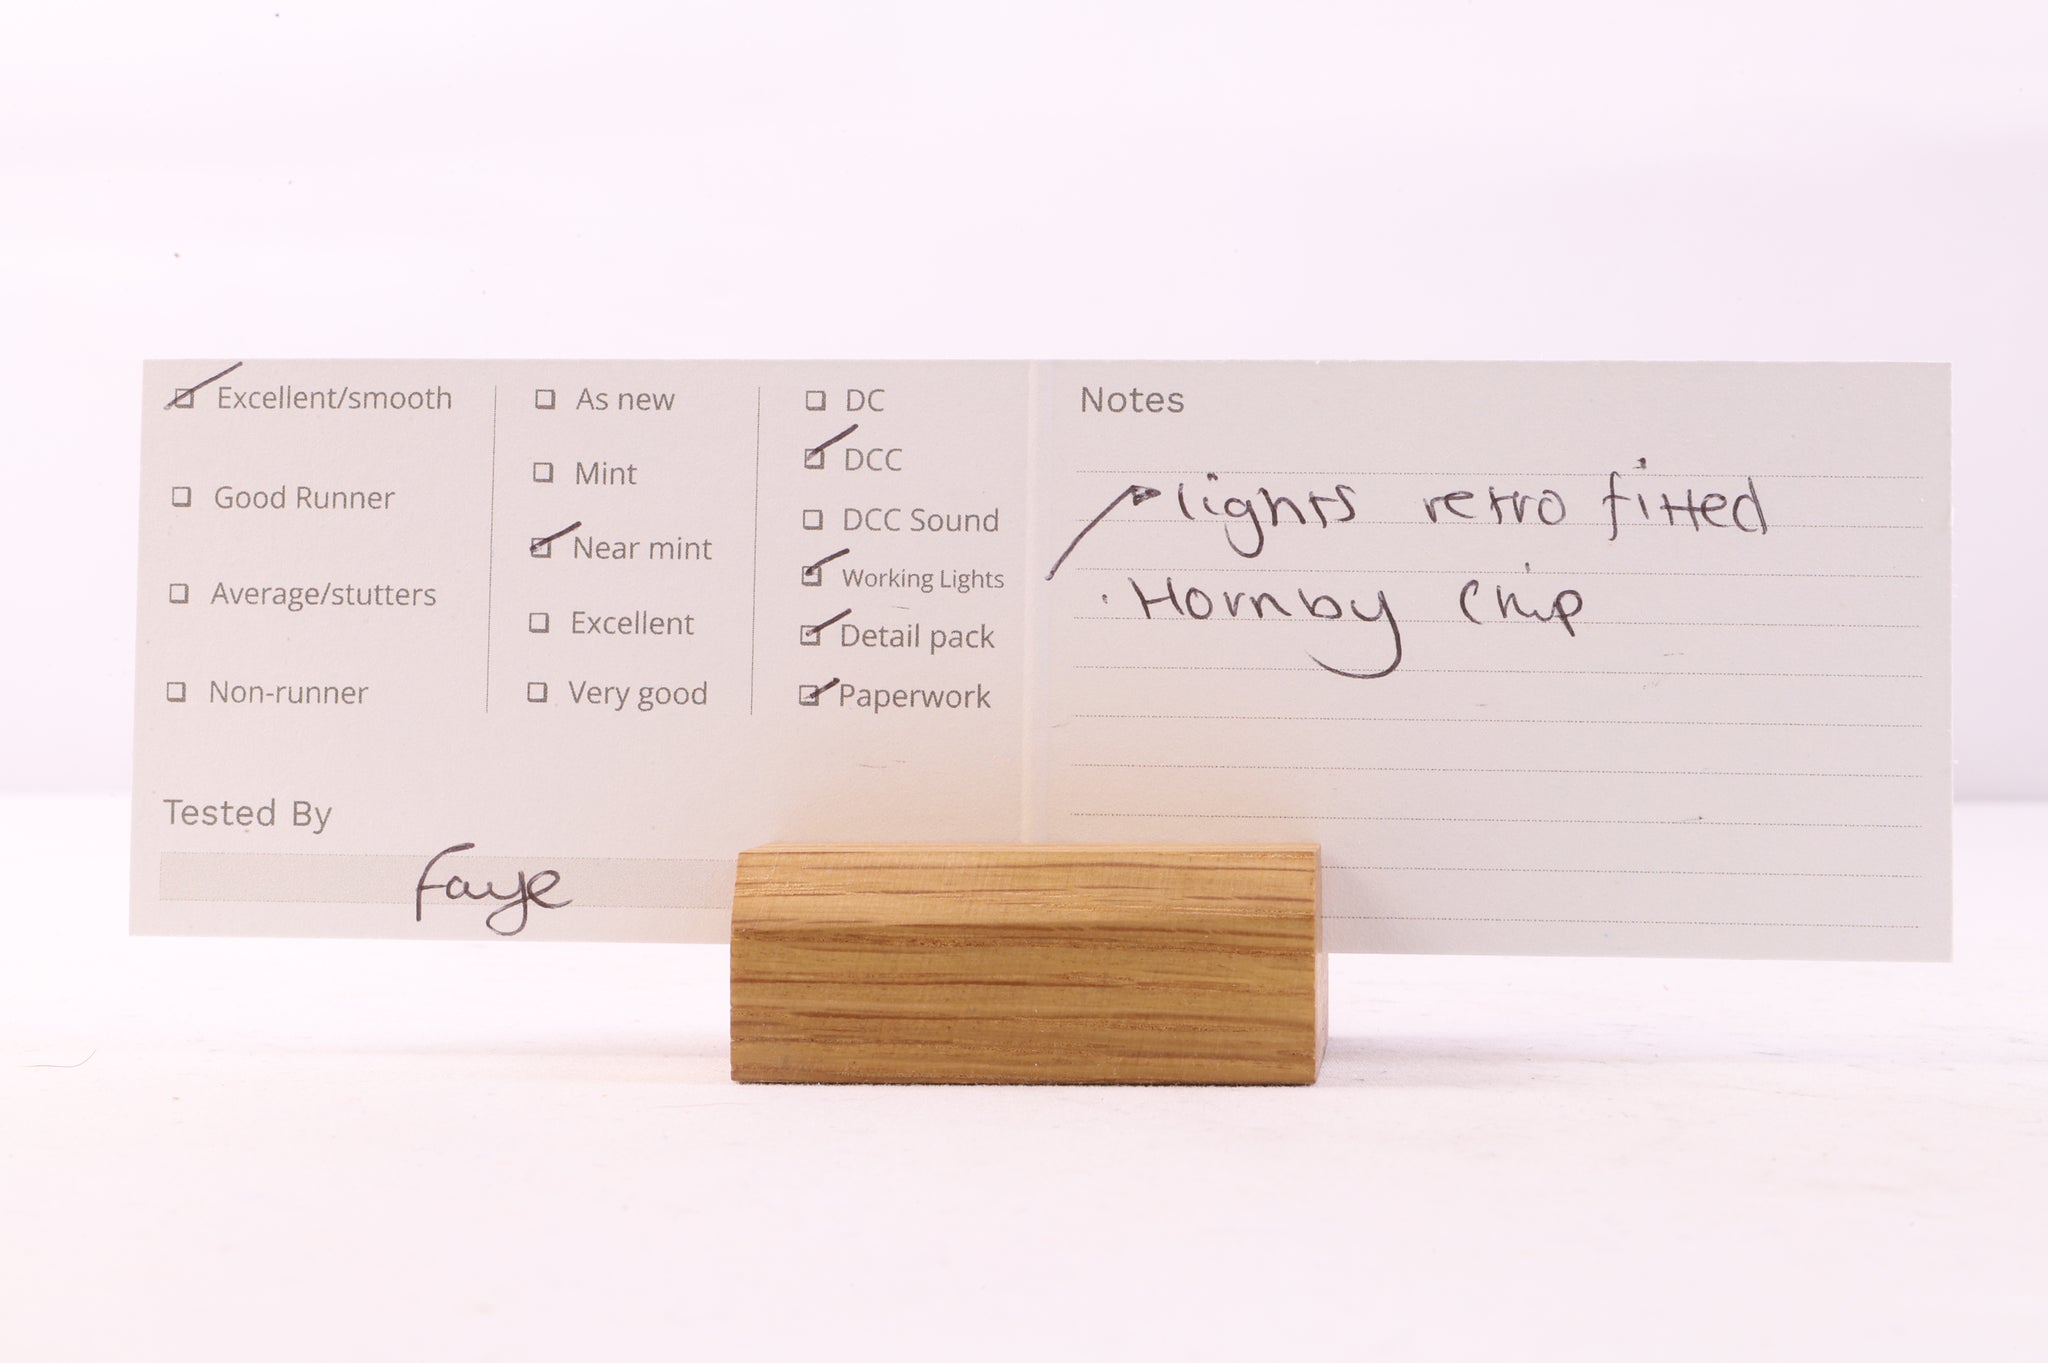 Excellent/smooth
Good Runner
Average/stutters
Non-runner
As new
Mint
Near mint
Excellent
Very good
DC
DCC
DCC Sound
Working Lights
Detail pack
Paperwork
Tested By
Faye
Notes
lights retro fitted
· Hornby chip